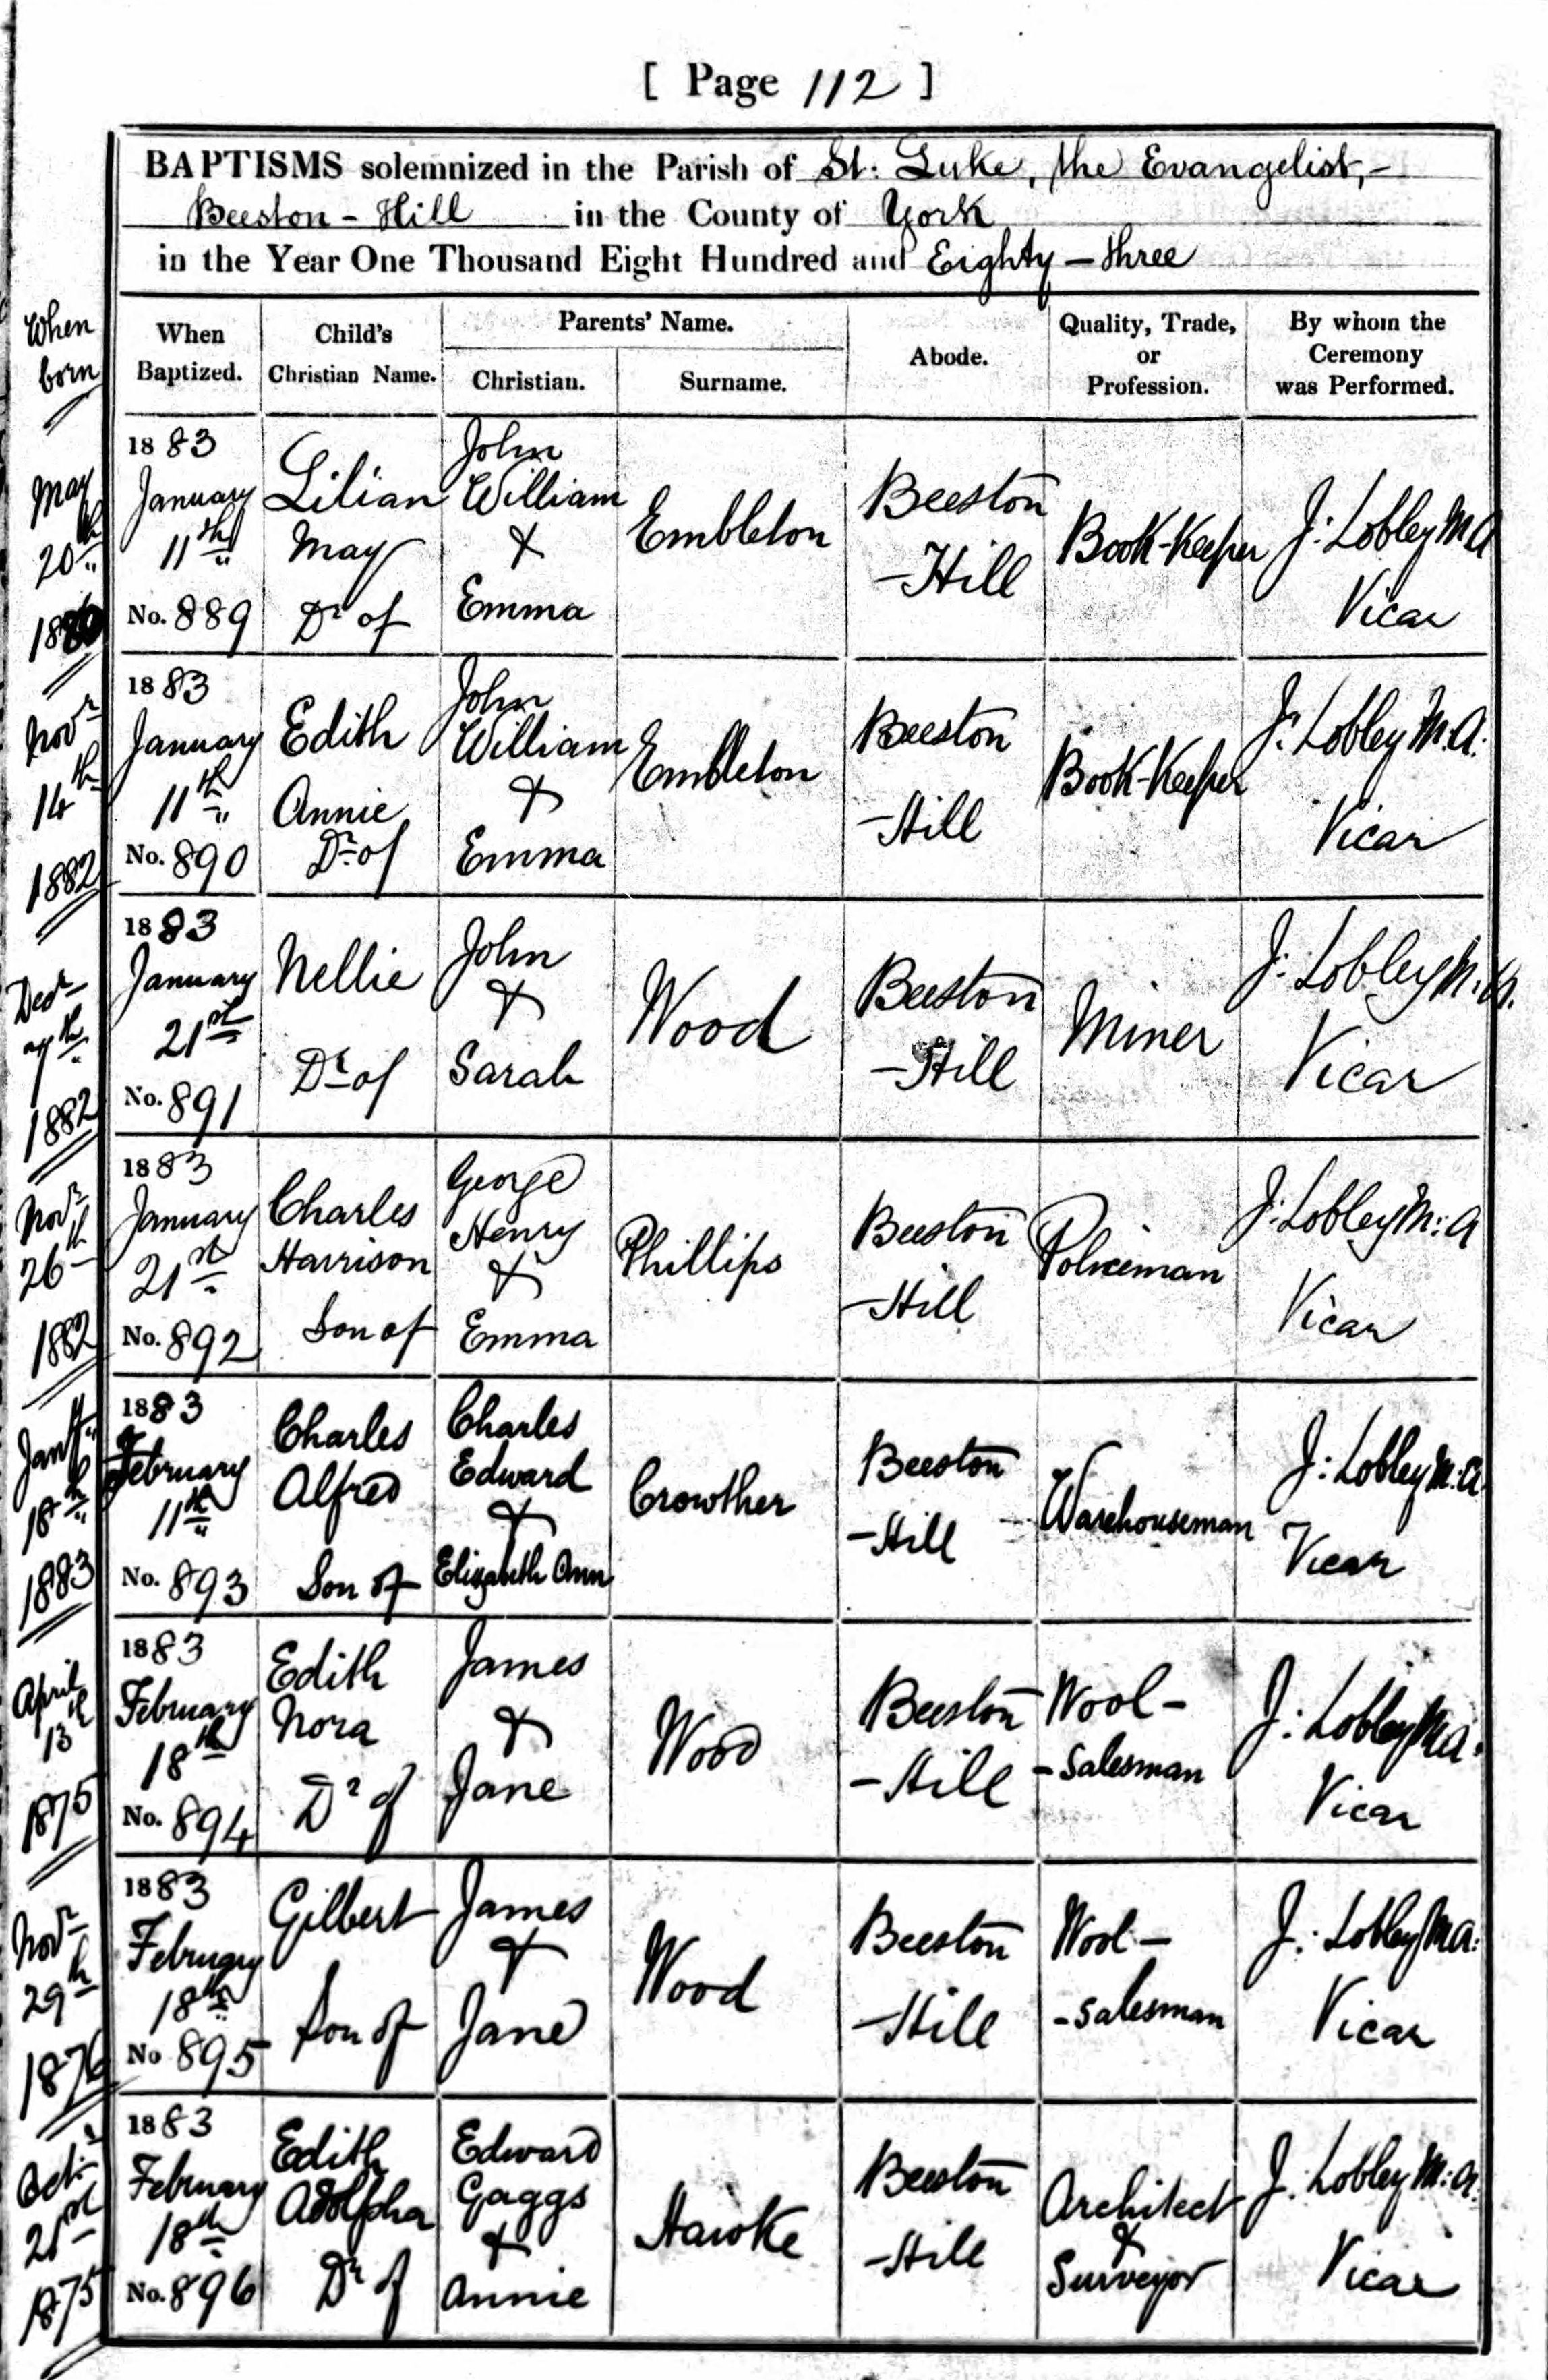 [ Page 112 ]
BAPTISMS solemnized in the Parish of St: Luke, the Evangelist,-
Beeston-Hill in the County of York
in the Year One Thousand Eight Hundred and Eighty-three
When born
When Baptized.
Child's Christian Name.
Parents' Name.
Christian.
Surname.
Abode.
Quality, Trade, or Profession.
By whom the Ceremony was Performed.
May 20th
1883 January 11th No. 889
Lilian May Dr of
John William & Emma
Embleton
Beeston -Hill
Book-Keeper
J: Lobley MA Vicar
Novr 14th 1882
1883 January 11th No. 890
Edith Annie Dr of
John William & Emma
Embleton
Beeston -Hill
Book-Keeper
J: Lobley M.A: Vicar
Decr 7th 1882
1883 January 21st No. 891
Nellie Dr of
John & Sarah
Wood
Beeston -Hill
Miner
J: Lobley M.A. Vicar
Novr 26th 1882
1883 January 21st No. 892
Charles Harrison Son of
George Henry & Emma
Phillips
Beeston -Hill
Policeman
J: Lobley M:A Vicar
18th 1883
1883 February 11th No. 893
Charles Alfred Son of
Charles Edward & Elizabeth Ann
Crowther
Beeston -Hill
Warehouseman
J: Lobley M.A. Vicar
April 13th 1875
1883 February 18th No. 894
Edith Nora Dr of
James & Jane
Wood
Beeston -Hill
Wool- -Salesman
J: Lobley MA. Vicar
Novr 29th 1876
1883 February 18th No 895
Gilbert Son of
James & Jane
Wood
Beeston -Hill
Wool- -Salesman
J: Lobley MA: Vicar
Octr 21st 1875
1883 February 18th No. 896
Edith Adolpha Dr of
Edward Gaggs & Annie
Hawke
Beeston -Hill
Architect & Surveyor
J: Lobley M:A. Vicar